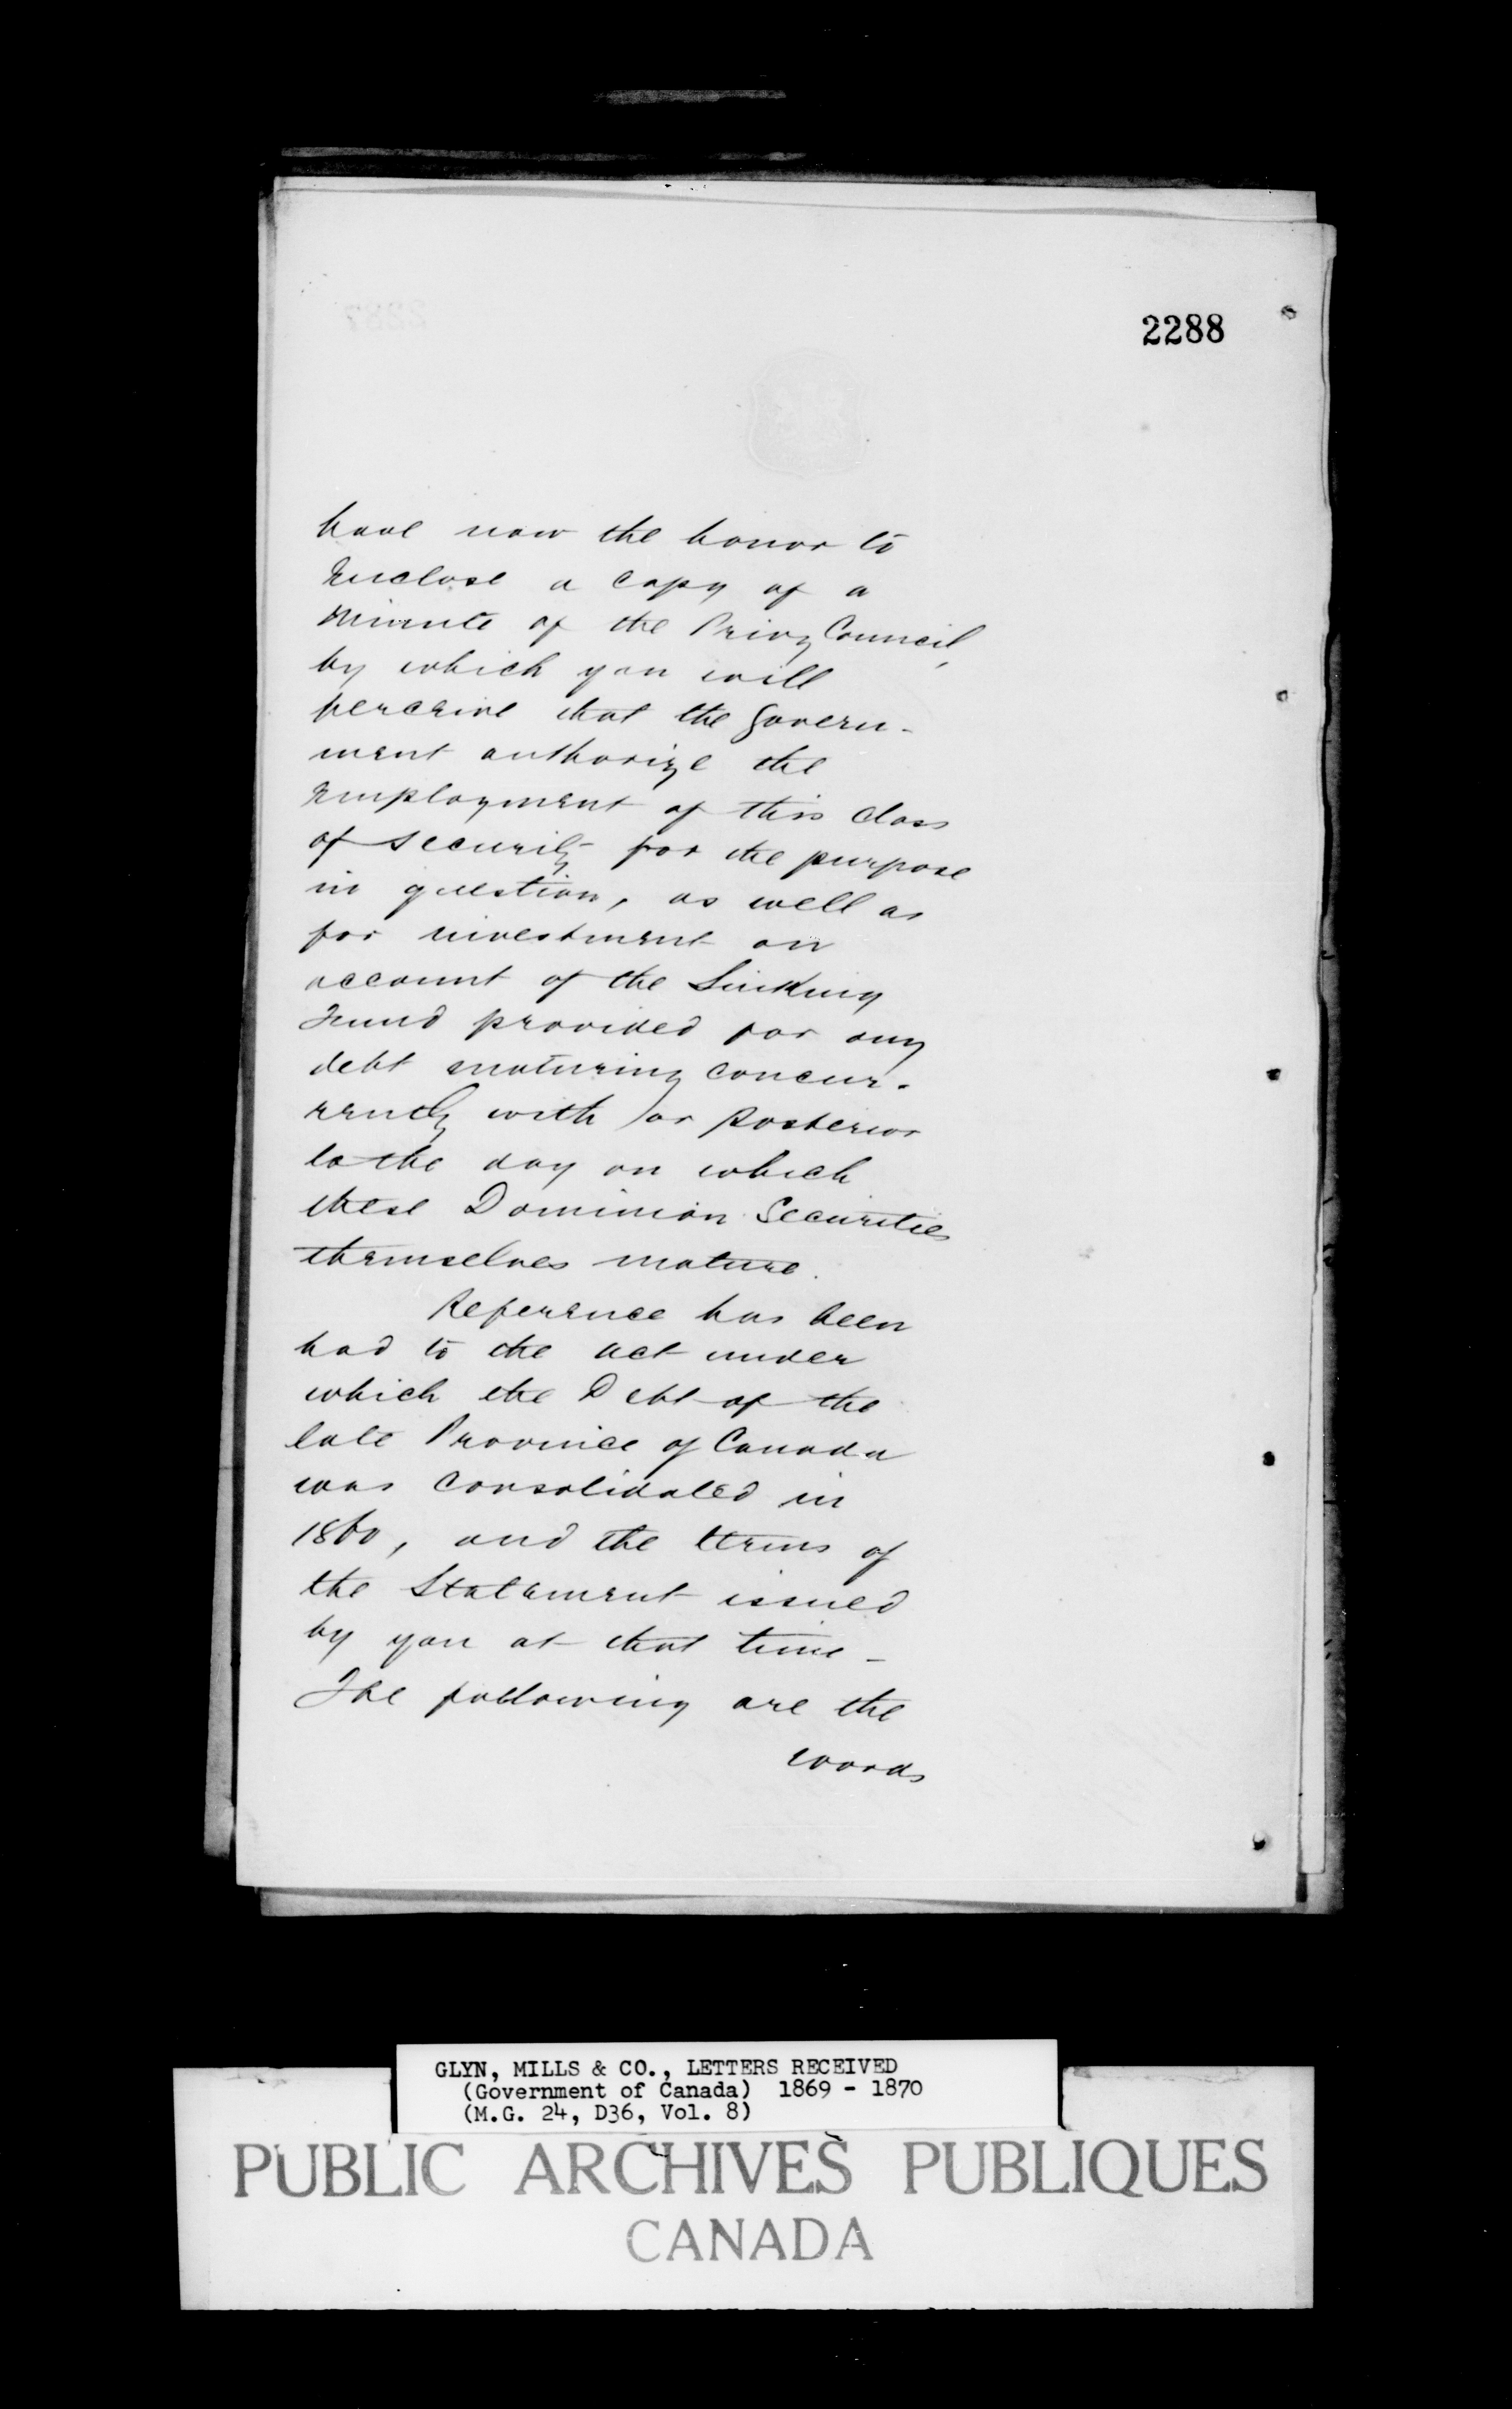 2288
have now the honor to
enclose a copy of a
Minute of the Privy Council,
by which you will
perceive that the Govern-
ment authorize the
employment of this class
of security for the purpose
in question, as well as
for investment on
account of the Sinking
Fund provided for any
debt maturing concur-
rently with or posterior
to the day on which
these Dominion Securities
themselves mature.
Reference has been
had to the act under
which the Debt of the
late Province of Canada
was consolidated in
1860, and the terms of
the Statement issued
by you at that time -
The following are the
words
GLYN, MILLS & CO., LETTERS RECEIVED
(Government of Canada) 1869 - 1870
(M.G. 24, D36, Vol. 8)
PUBLIC ARCHIVES PUBLIQUES
CANADA